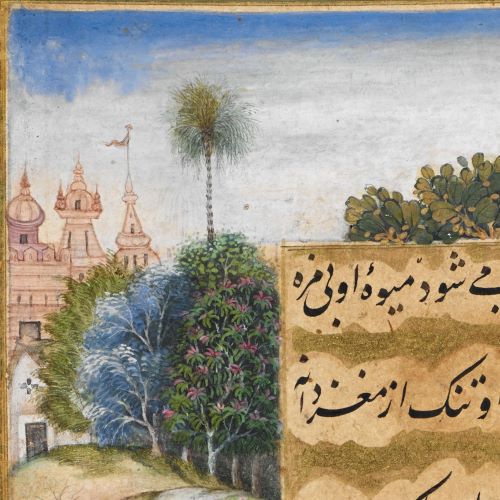 می شود میوهٔ او بی مزه
و تنک از مغز دانه